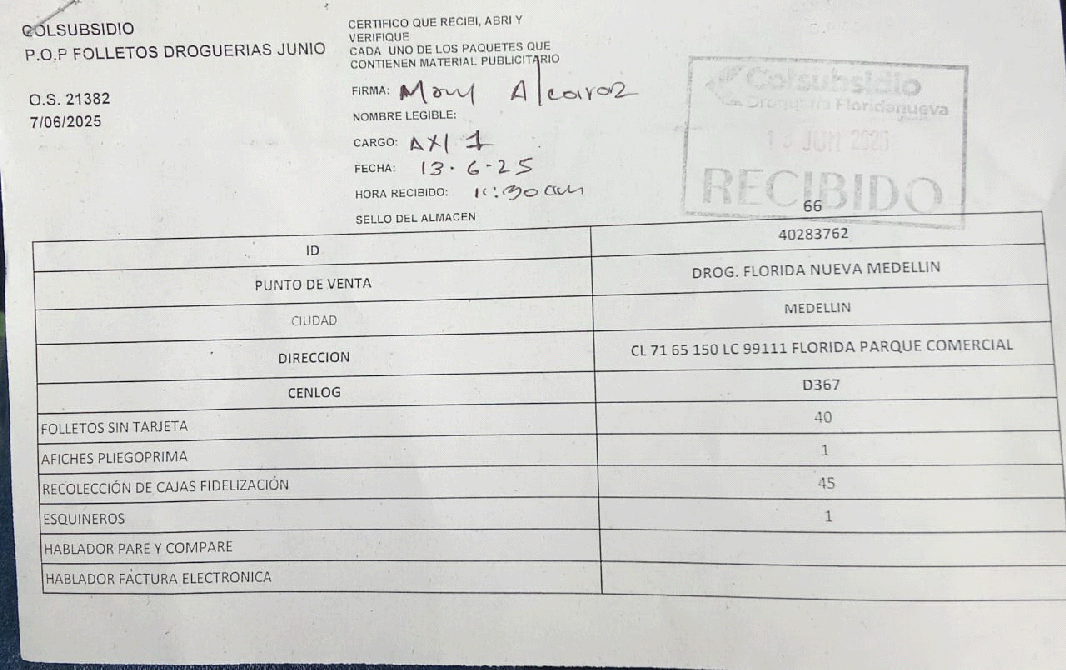 COLSUBSIDIO
P.O.P FOLLETOS DROGUERIAS JUNIO
O.S. 21382
7/06/2025
CERTIFICO QUE RECIBI, ABRI Y
VERIFIQUE
CADA UNO DE LOS PAQUETES QUE
CONTIENEN MATERIAL PUBLICITARIO
FIRMA: Alcaraz
NOMBRE LEGIBLE:
CARGO: AXI 1
FECHA: 13-6-25
HORA RECIBIDO: 11:30 am
SELLO DEL ALMACEN
Colsubsidio
Droguería Floridanueva
JUN
RECIBIDO
66
ID 40283762
PUNTO DE VENTA DROG. FLORIDA NUEVA MEDELLIN
CIUDAD MEDELLIN
DIRECCION CL 71 65 150 LC 99111 FLORIDA PARQUE COMERCIAL
CENLOG D367
FOLLETOS SIN TARJETA 40
AFICHES PLIEGOPRIMA 1
RECOLECCIÓN DE CAJAS FIDELIZACIÓN 45
ESQUINEROS 1
HABLADOR PARE Y COMPARE
HABLADOR FACTURA ELECTRONICA